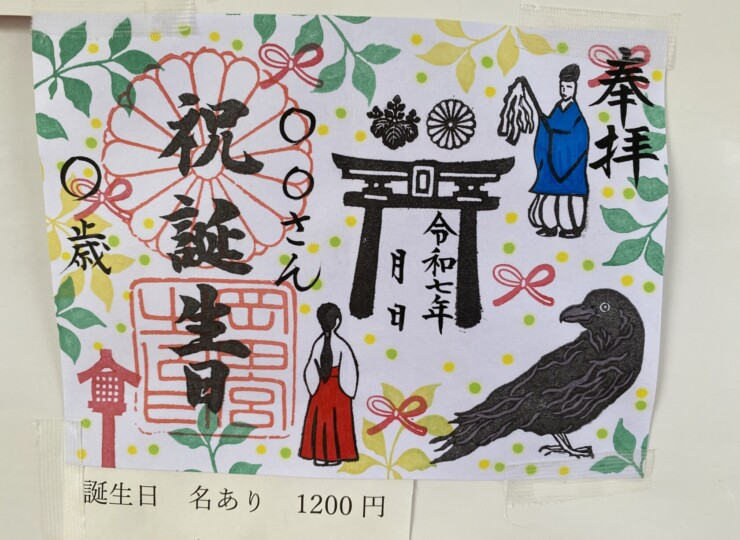 奉拝
令和七年
月日
〇〇さん
祝誕生日
〇歳
誕生日 名あり 1200円